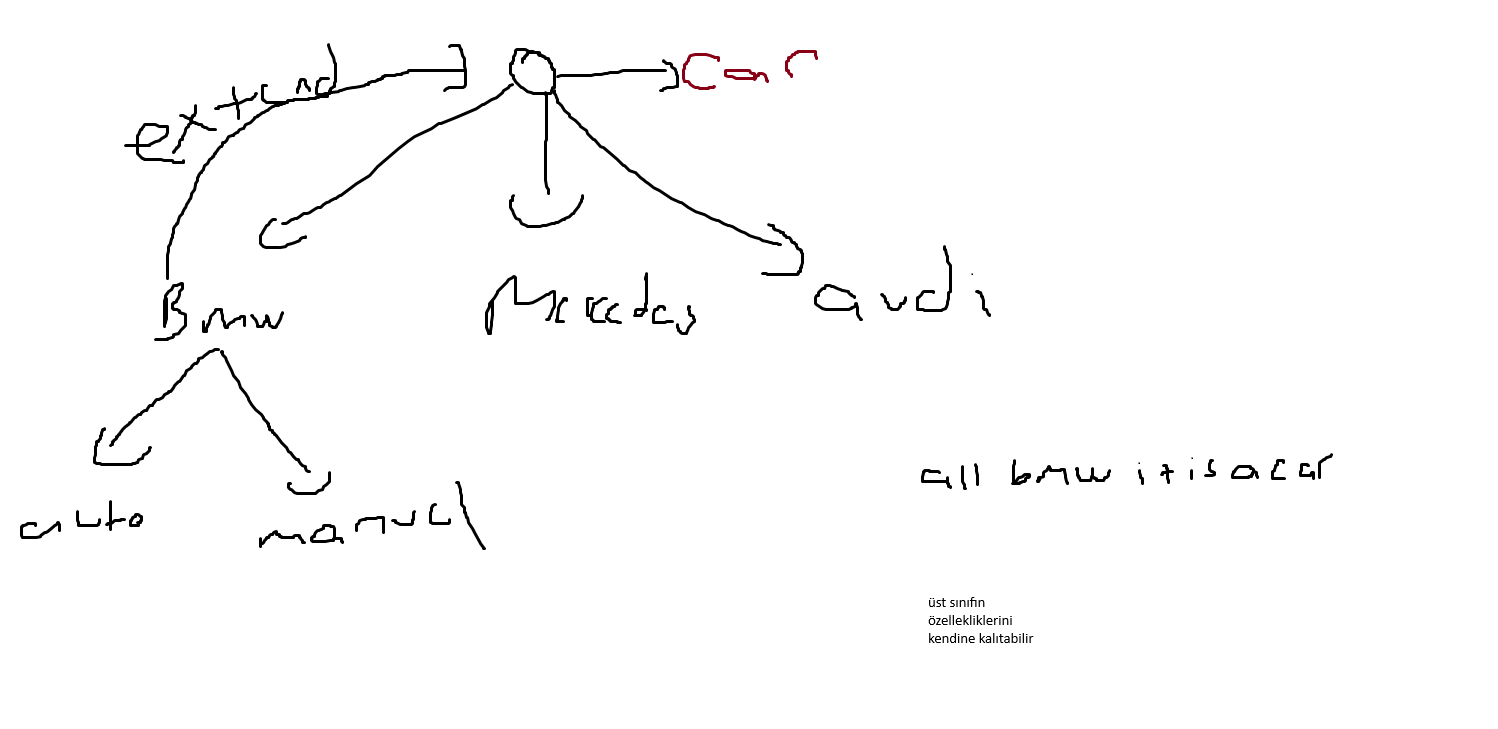 extend
Car
Bmw
Mercedes
audi
auto
manual
all bmw it is a car
üst sınıfın
özellekliklerini
kendine kalıtabilir